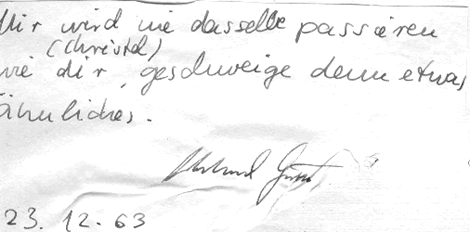 Mir wird nie dasselbe passieren
(Christel)
wie dir, geschweige denn etwas
ähnliches.
23. 12. 63